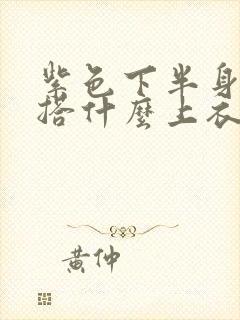 紫色下半身
搭什麼上衣
黄仲